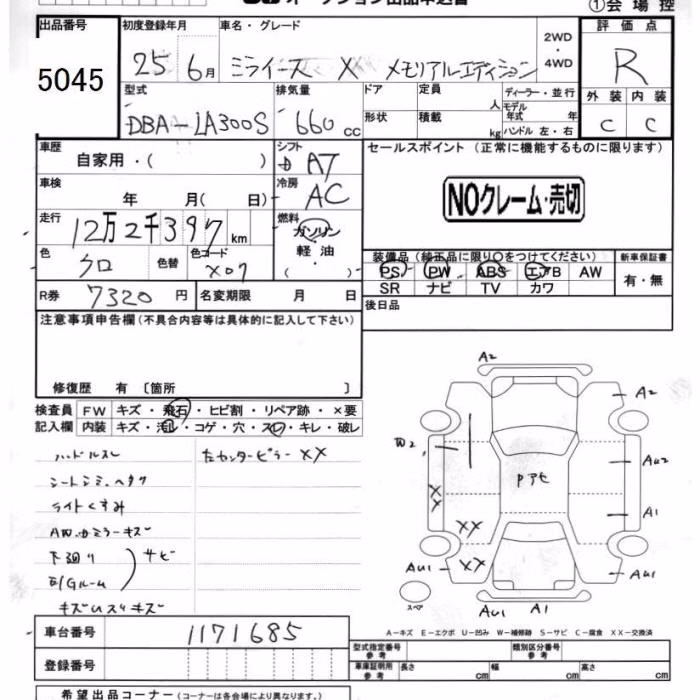 ①会場控
出品番号
5045
初度登録年月
25年 6月
車名・グレード
ミライース X メモリアルエディション
2WD
・
4WD
評価点
R
外装 内装
C C
型式
DBA-LA300S
排気量
660 cc
ドア
定員 人
形状
積載 kg
ディーラー・並行
モデル年式 年
ハンドル 左・右
車歴
自家用・( )
シフト
AT
セールスポイント(正常に機能するものに限ります)
NOクレーム・売切
車検
年 月( 日)
冷房
AC
走行
12万2千397 km
燃料
ガソリン
軽油
( )
色
クロ
色替
色コード
X07
装備品(純正品に限り〇をつけてください)
PS PW ABS エアB AW
SR ナビ TV カワ
新車保証書
有・無
R券 7320 円
名変期限 月 日
後日品
注意事項申告欄(不具合内容等は具体的に記入して下さい)
修復歴 有 〔箇所 〕
検査員記入欄
FW キズ・飛石・ヒビ割・リペア跡・×要
内装 キズ・汚レ・コゲ・穴・スレ・キレ・破レ
ハンドルスレ
左センターピラーXX
シートシミ、ヘタリ
ライトくすみ
下廻り
サビ
E/Gルーム
A2
A2
W2
Pアセ
AU2
XX
A1
XX
XX
AU1
AU1
スペア
AU1
A1
A-キズ E-エクボ U-凹み W-補修跡 S-サビ C-腐食 XX-交換済
車台番号
1171685
登録番号
型式指定番号
参考
類別区分番号
参考
車庫証明用
参考
長さ cm
幅 cm
高さ cm
希望出品コーナー(コーナーは各会場により異なります。)